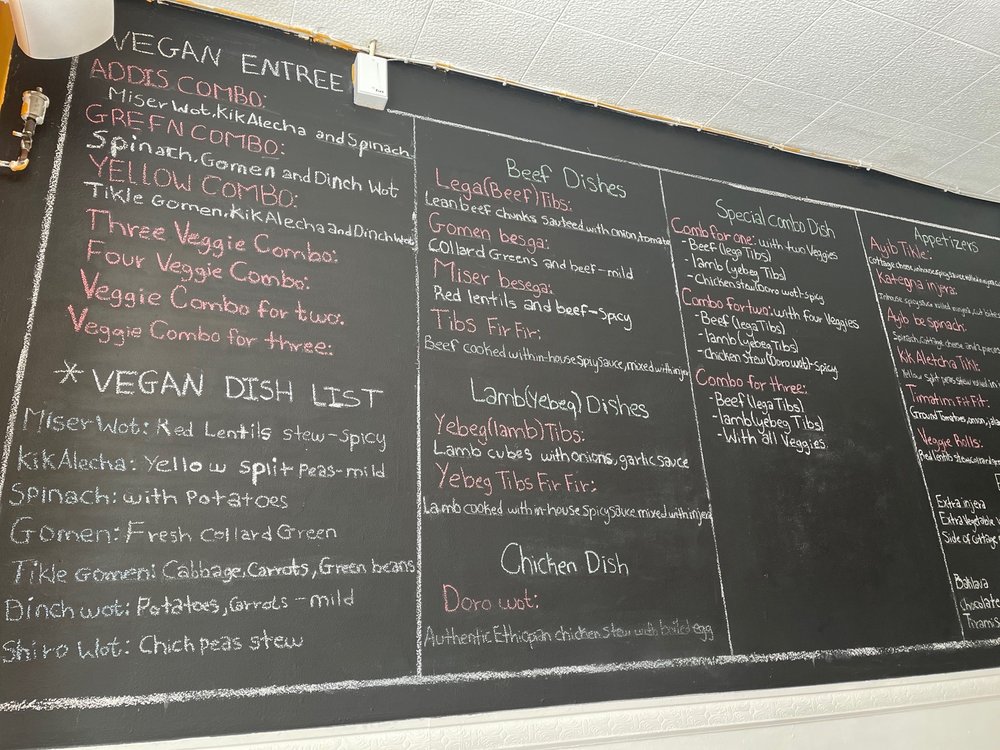 VEGAN ENTREE
ADDIS COMBO:
Miser Wot, Kik Alecha and Spinach
GREEN COMBO:
Spinach, Gomen and Dinch Wot
YELLOW COMBO:
Tikle Gomen, Kik Alecha and Dinch Wot
Three Veggie Combo:
Four Veggie Combo:
Veggie Combo for two:
Veggie Combo for three:
*VEGAN DISH LIST
Miser Wot: Red Lentils stew-spicy
Kik Alecha: Yellow split peas-mild
Spinach: with Potatoes
Gomen: Fresh collard Green
Tikle Gomen: Cabbage, Carrots, Green beans
Dinch wot: Potatoes, Carrots - mild
Shiro Wot: Chick peas stew
Beef Dishes
Lega(Beef)Tibs:
Lean beef chunks sauteed with onion, tomato
Gomen besga:
Collard Greens and beef-mild
Miser besega:
Red lentils and beef-spicy
Tibs Fir Fir:
Beef cooked with in-house Spicy Sauce, mixed with injera
Lamb(Yebeg) Dishes
Yebeg(lamb)Tibs:
Lamb cubes with onions, garlic sauce
Yebeg Tibs Fir Fir:
Lamb cooked with in-house Spicy sauce mixed with injera
Chicken Dish
Doro wot:
Authentic Ethiopian chicken stew with boiled egg
Special Combo Dish
Comb for one: with two Veggies
-Beef (lega Tibs)
-lamb (yebeg Tibs)
-Chicken stew (Doro wot)-spicy
Combo for two: with four Veggies
-Beef (lega Tibs)
-lamb (yebeg Tibs)
-Chicken stew (Doro wot)-spicy
Combo for three:
-Beef (lega Tibs)
-lamb (yebeg Tibs)
-With all Veggies
Appetizers
Ayib Tikle:
Cottage cheese,
Kategna injera:
Ayib be Spinach:
Spinach, Cottage cheese,
Kik Aletcha Tikil:
Yellow split peas stew
Timatim Fit Fit:
Ground Tomatoes, onion,
Veggie Rolls:
Red lentils stew,
Extra injera
Extra Vegetable
Side of Cottage
Baklava
Chocolate
Tiramisu